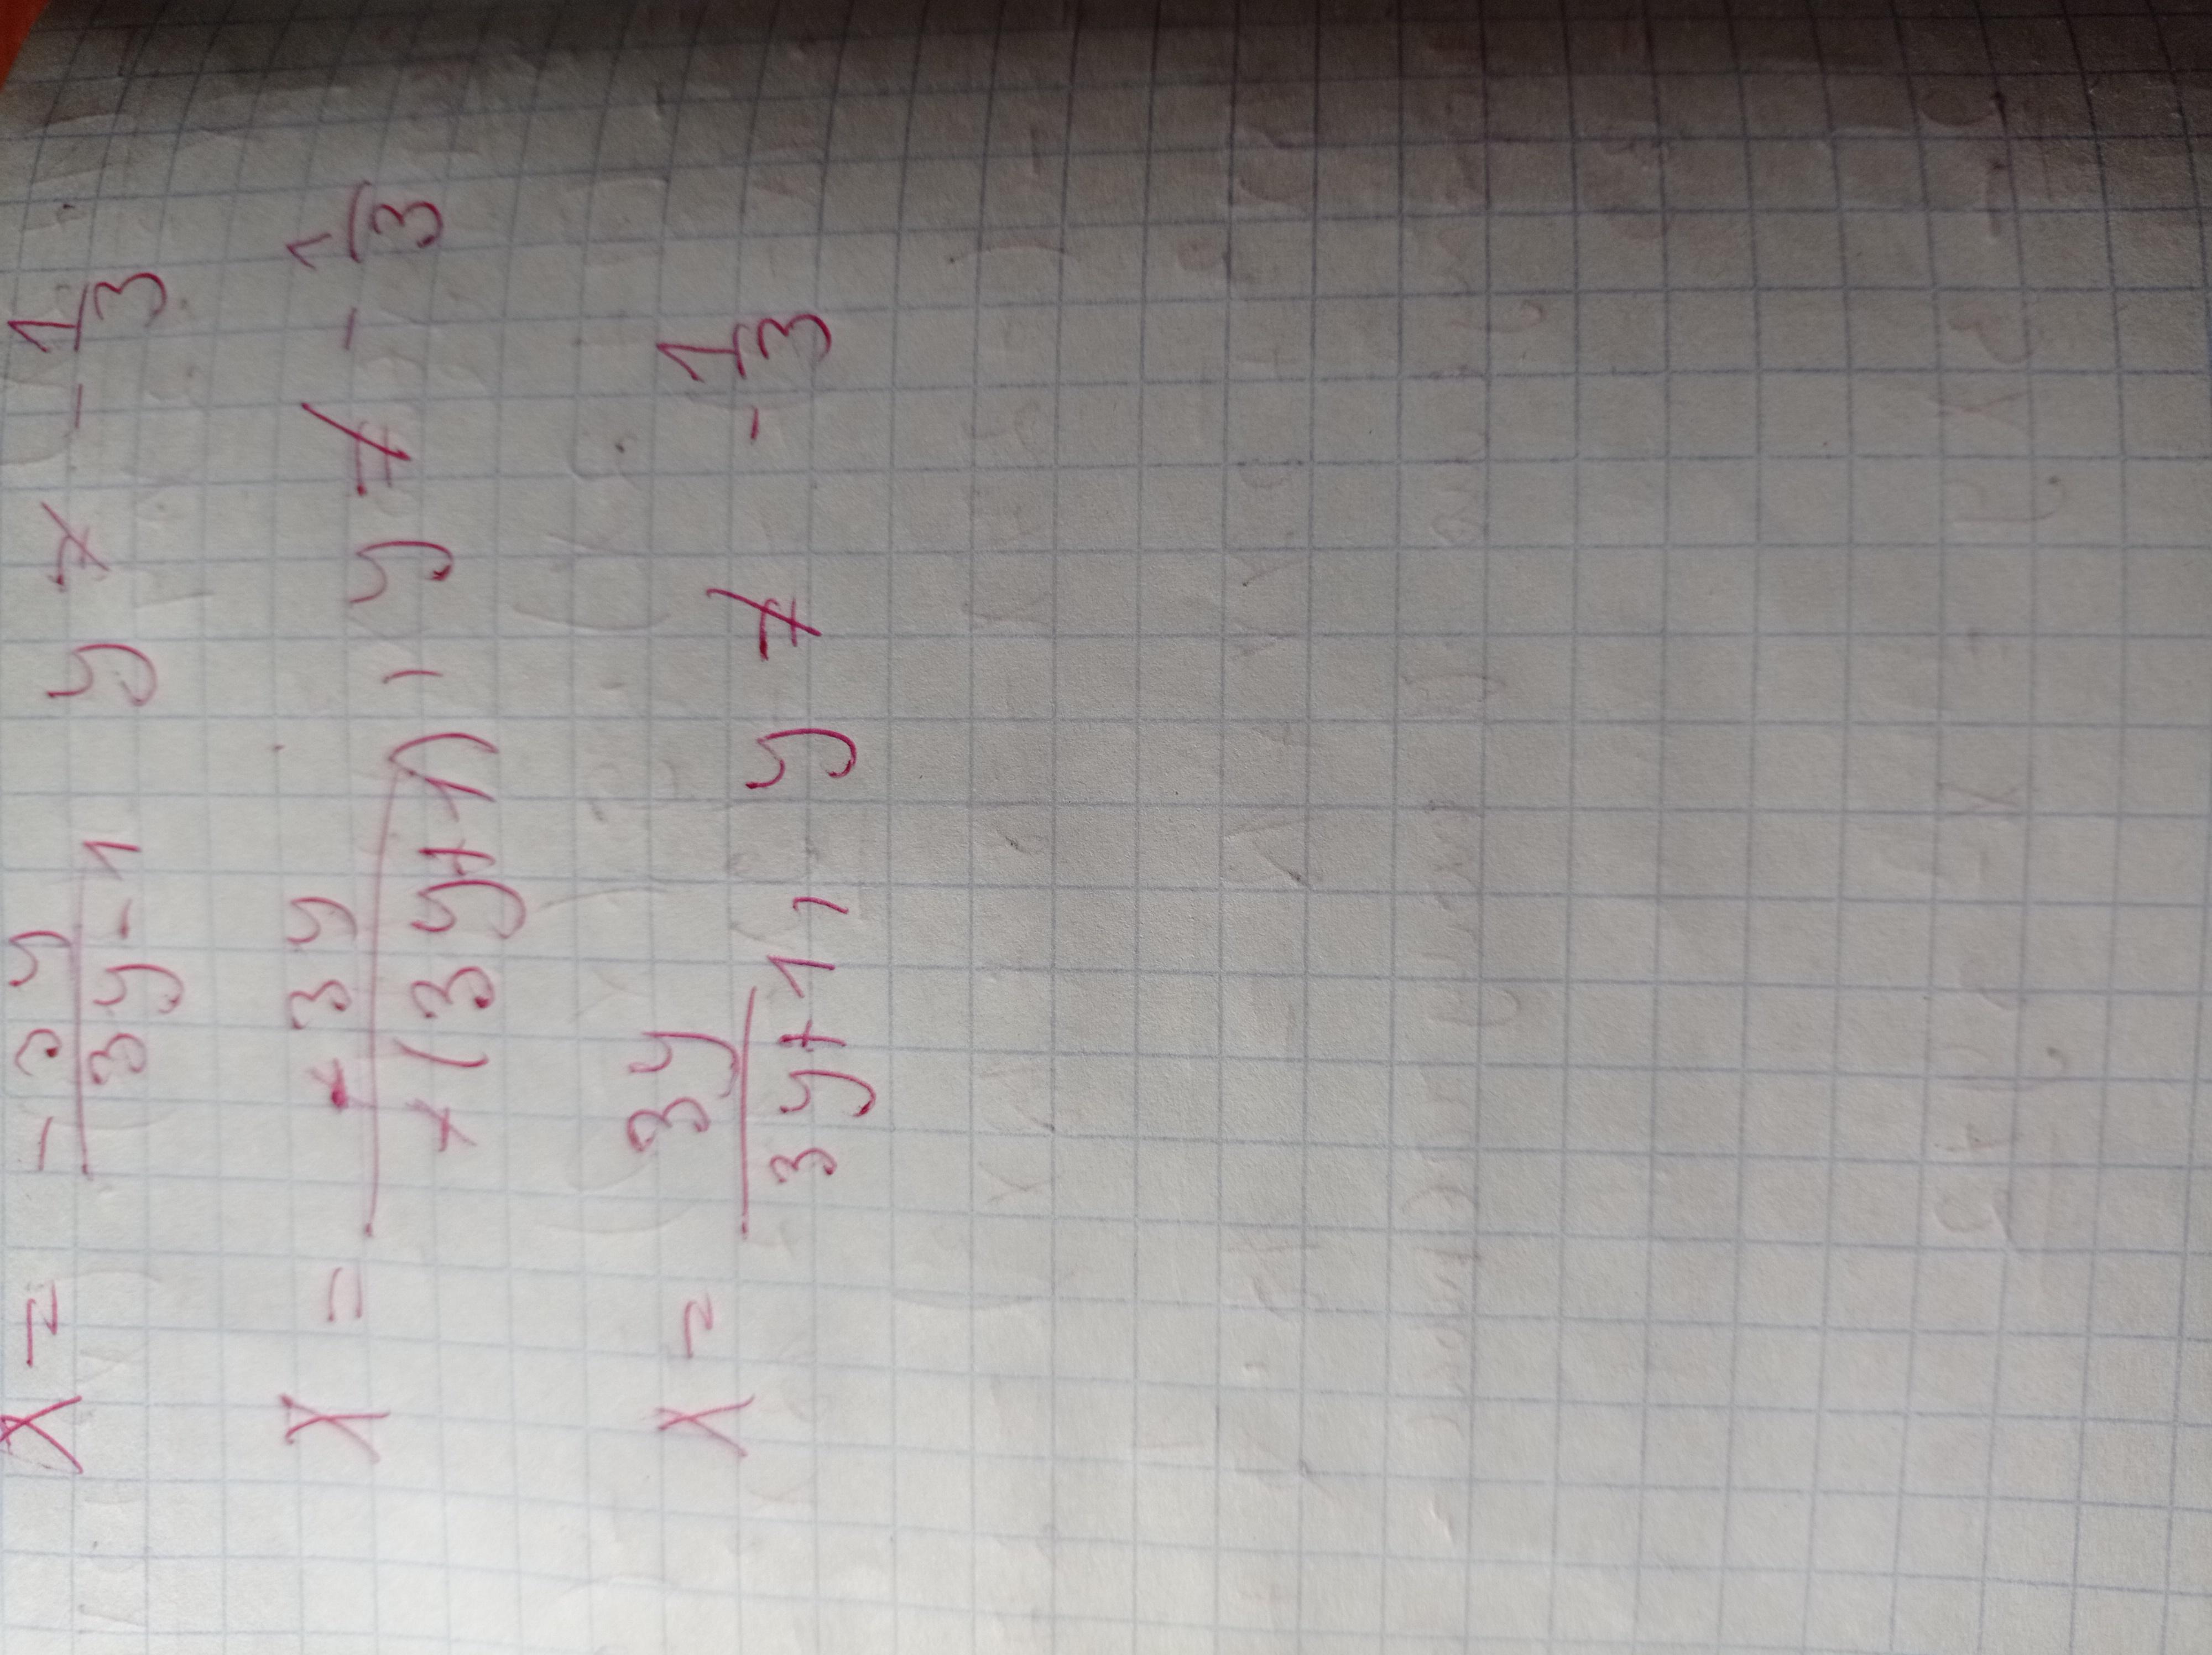 x = -3y/3y-1 y ≠ -1/3
x = +3y/+(3y+1), y ≠ -1/3
x = 3y/3y+1, y ≠ -1/3